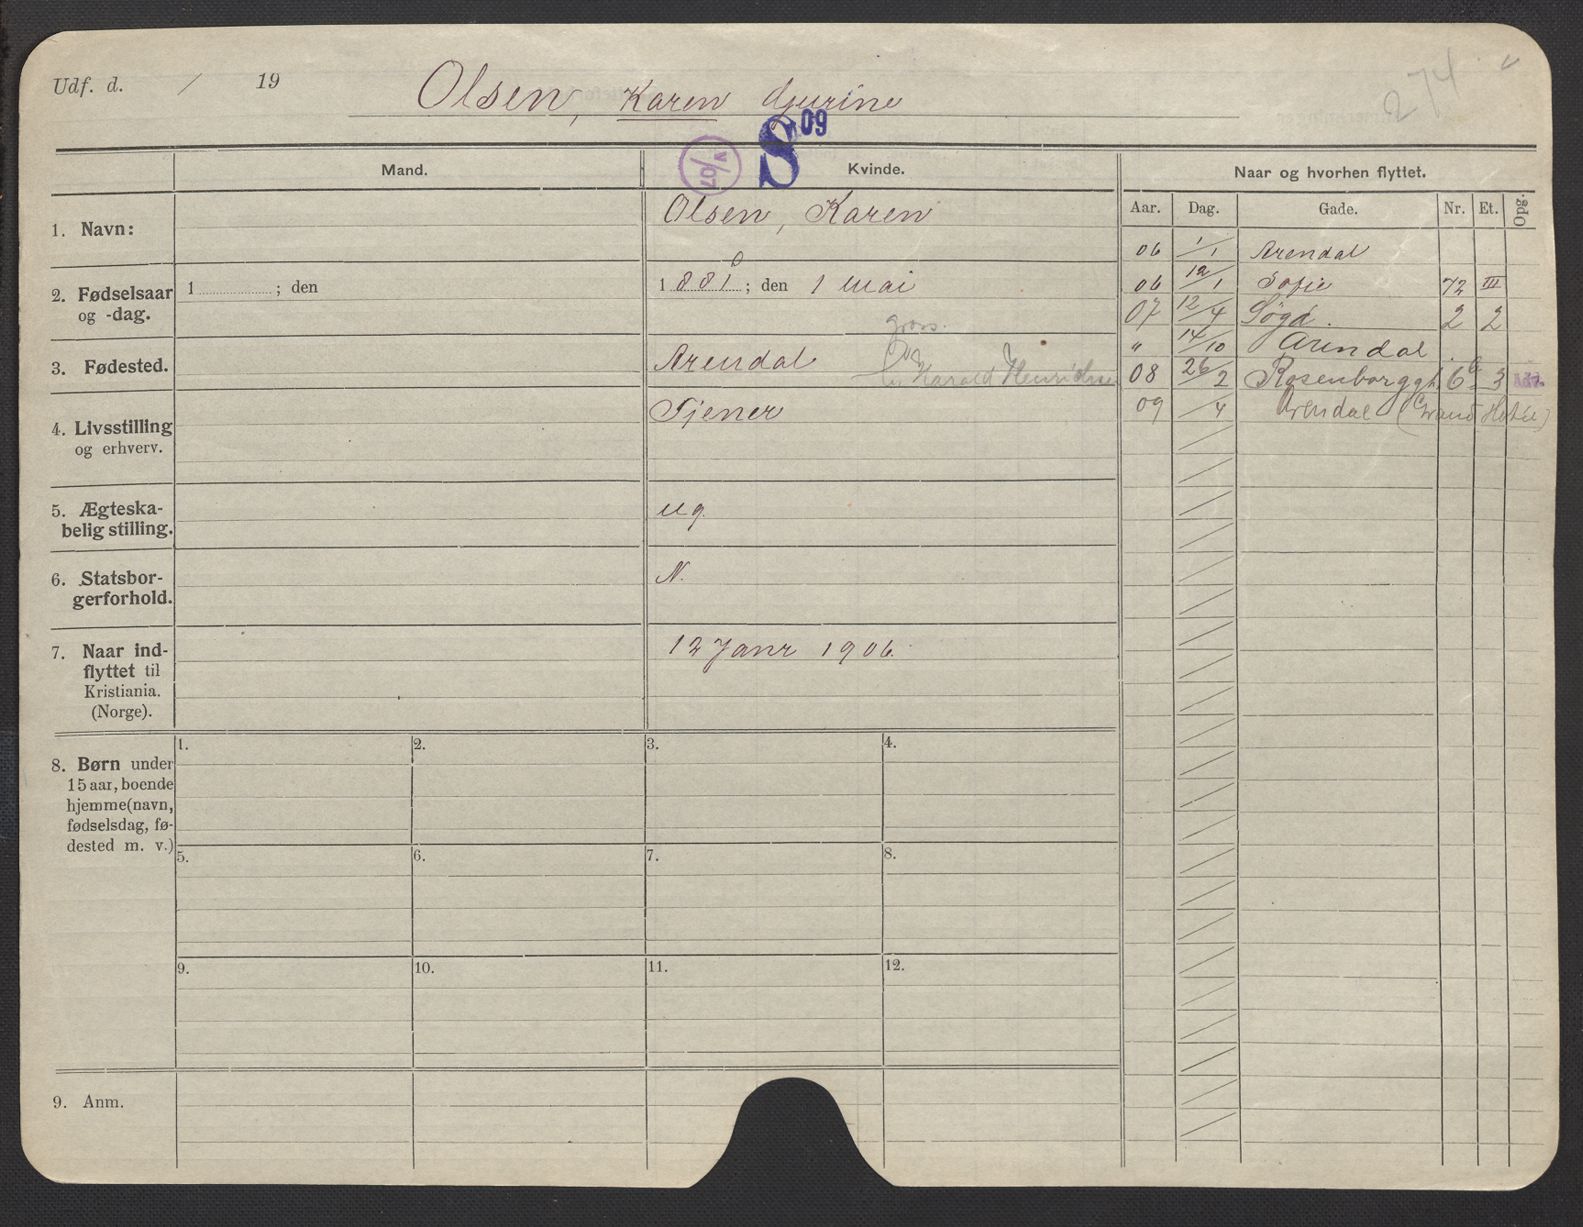 Udf. d. / 19
Olsen, Karen Gjurine
274
IV/07
S 09
Mand.
Kvinde.
Naar og hvorhen flyttet.
Aar. Dag. Gade. Nr. Et. Opg.
1. Navn:
Olsen, Karen
2. Fødselsaar
og -dag.
1 ; den
1 881 ; den 1 mai
0
3. Fødested.
Arendal
Harald Henriksen
4. Livsstilling
og erhverv.
Tjener
5. Ægteska-
belig stilling.
ug.
6. Statsbor-
gerforhold.
N.
7. Naar ind-
flyttet til
Kristiania.
(Norge).
12 Janr 1906.
06 1/1 Arendal
06 12/1 Sofie 72 III
07 12/4 Søgd. 2 2
" 14/10 Arendal.
08 26/2 Rosenborggt. 6b 3
09 /4 Arendal (Grand Hotel)
8. Børn under
15 aar, boende
hjemme (navn,
fødselsdag, fø-
dested m. v.)
1. 2. 3. 4.
5. 6. 7. 8.
9. 10. 11. 12.
9. Anm.